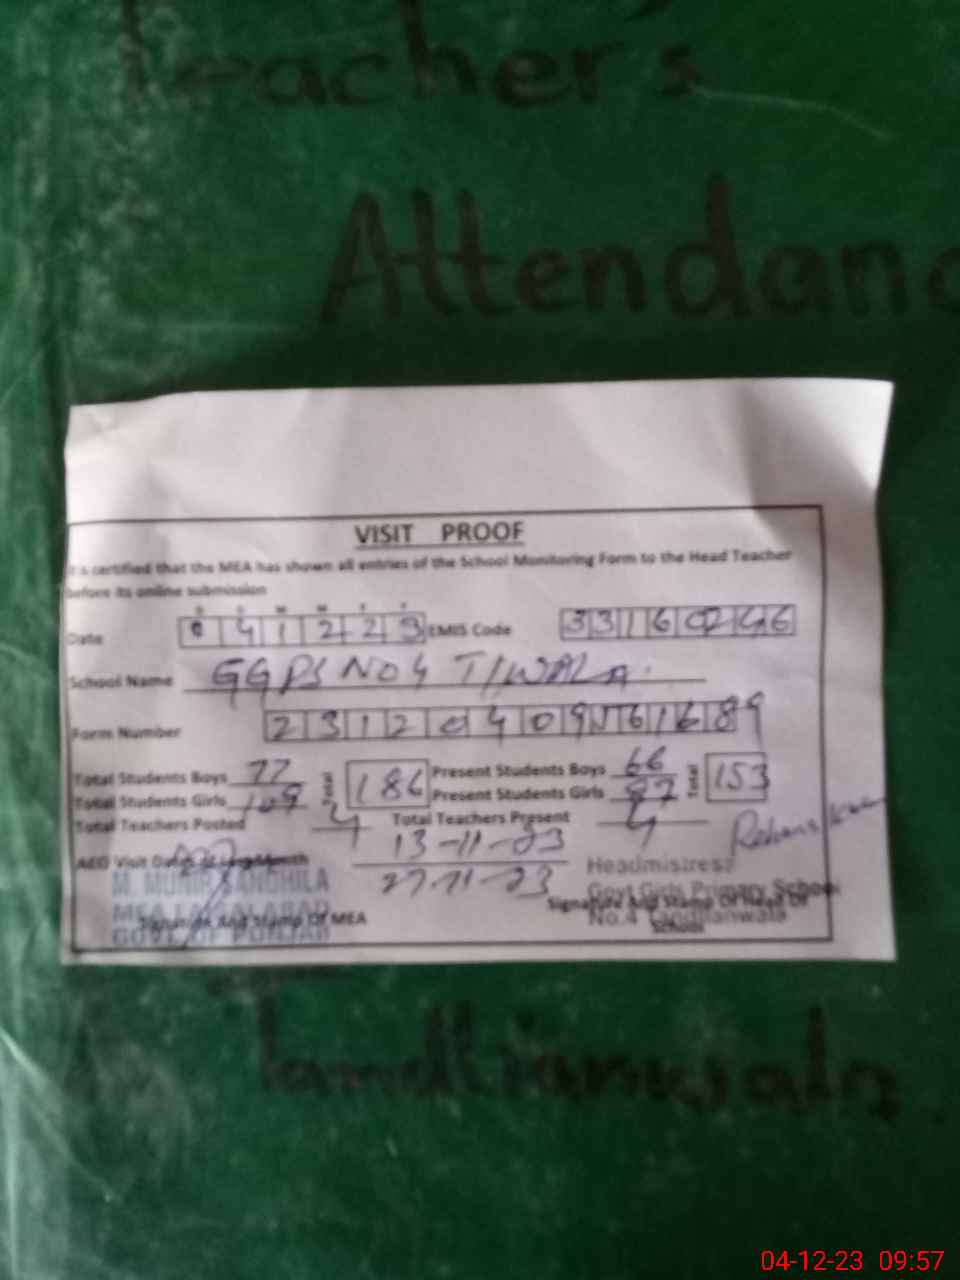 Teacher's
Attendanc
VISIT PROOF
It is certified that the MEA has shown all entries of the School Monitoring Form to the Head Teacher
before its online submission
D D M M Y Y
Date 0 4 1 2 2 3 EMIS Code 3 3 1 6 0 2 4 6
School Name GGPS NO 4 T/WALA.
Form Number 2 3 1 2 0 4 0 9 5 6 1 6 8 9
Total Students Boys 77 Total 186 Present Students Boys 66 Total 153
Total Students Girls 109 Present Students Girls 87
Total Teachers Posted 4 Total Teachers Present 4
AEO Visit Dates of Last Month 13-11-23
27-11-23
M. MUNIR SANDHILA
MEA FAISALABAD
GOVT. OF PUNJAB
Signature And Stamp Of MEA
Headmistress
Govt Girls Primary School
No.4 Tandlianwala
Signature And Stamp Of Head Of
School
Tandlianwala
04-12-23 09:57